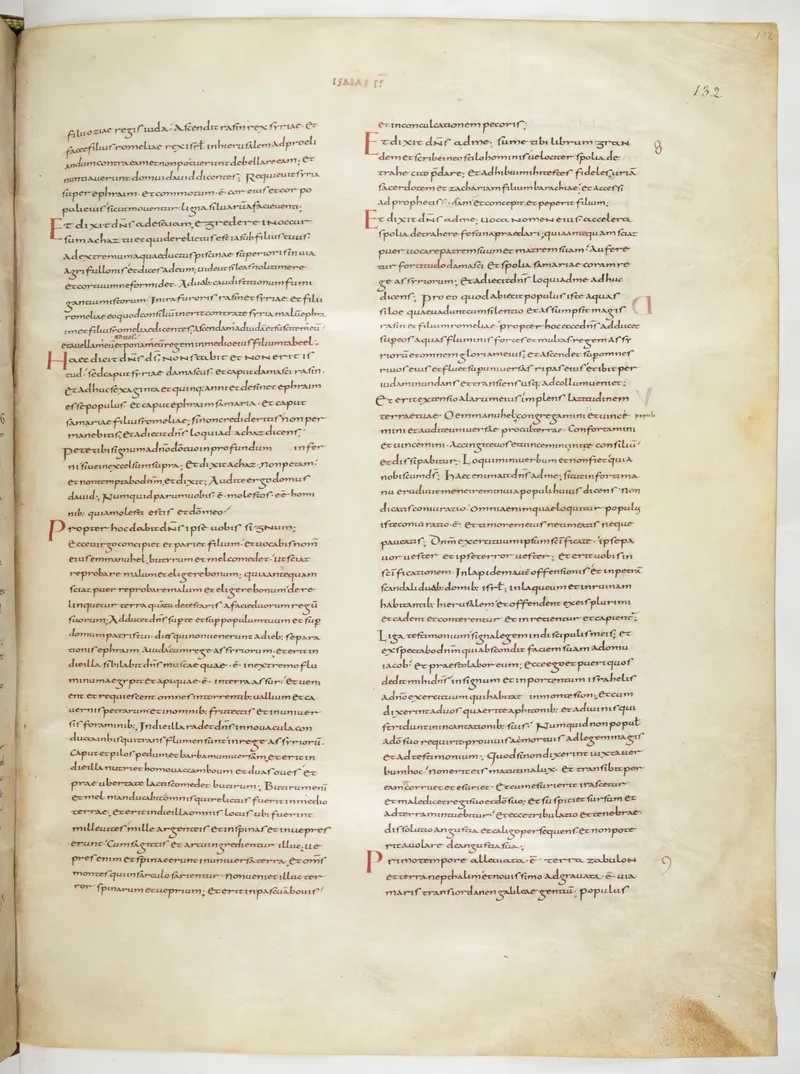 132
ISAIAS II
filii oziae regis iuda; Ascendit rasin rex syriae et
facee filius romeliae rex isrl inhierusalem adproeli
andum contra eam et non potuerunt debellare eam; Et
nuntiauerunt domui dauid dicentes; Requieuit syria
super ephraim et commotum ē cor eius et cor po
puli eius sicut mouentur ligna siluarū a facie uenti;
Et dixit dns ad esaiam, egredere inoccur
sum achaz tu et qui derelictus est iasub filius tuus
ad extremum aquaeductus piscinae superioris in uia
agri fullonis et dices ad eum, uide ut sileas noli timere
et cor tuum ne formidet. A duab; caudis titionum fumi
gantium istorum In ira furoris rasin et syriae et filii
romeliae eo quod consiliū inierit contra te syria malū ephra
im et filius romeliae dicentes, ascendamus ad iudā et suscitemus eū
et auellamus eū ad nos et ponamus regem in medio eius filium tabeel;
Haec dicit dns ds, non stabit et non erit is
tud sed caput syriae damascus et caput damasci rasin.
Et adhuc sexaginta et quinq; anni et desinet ephraim
esse populus et caput ephraim samaria et caput
samariae filius romeliae; si non credideritis non per
manebitis; Et adiecit dns loqui ad achaz dicens
pete tibi signum a dno deo tuo in profundum infer
ni siue in excelsum supra; Et dixit achaz non petam
et non temptabo dnm, et dixit; Audite ergo domus
dauid; Numquid parum uobis ē molestos eē homi
nib; quia molesti estis et dō meo
Propter hoc dabit dns ipse uobis signum;
Ecce uirgo concipiet et pariet filium et uocabis nom̄
eius emmanuhel, butirum et mel comedet ut sciat
reprobare malum et eligere bonum; quia antequam
sciat puer reprobare malum et eligere bonum dere
linquetur terra quā tu detestaris a facie duorum regū
suorum; Adducet dns sup te et sup populum tuum et sup
domum patris tui dies qui non uenerunt a dieb; separa
tionis ephraim a iuda cum rege assyriorum. et erit in
die illa sibilabit dns muscae quae ē in extremo flu
minum aegypti et api quae ē in terra assur. et ueni
ent et requiescent omnes in torrentib; uallium et ca
uernis petrarum et in omnib; frutectis et in uniuer
sis foraminib; In die illa radet dns in nouacula con
ducta in his qui trans flumen sunt in rege assyriorū.
Caput et pilos pedum et barbam uniuersam, et erit in
die illa nutriet homo uaccam boum et duas oues et
prae ubertate lactis comedet butirum; Butirum enī
et mel manducabit omnis qui relictus fuerit in medio
terrae, et erit in die illa omnis locus ubi fuerint
mille uites mille argenteis et in spinas et in uepres
erunt Cum sagittis et arcu ingredientur illuc, ue
pres enim et spinae erunt in uniuersa terra, et oms
montes qui in sarculo sarientur. non ueniet illuc ter
ror spinarum et ueprium; et erit in pascua bouis
et in conculcationem pecoris;
Et dixit dns ad me; sume tibi librum gran
8
dem et scribe in eo stilo hominis uelociter spolia de
trahe cito p̄dare; et adhibui mihi testes fideles, uriā
sacerdotem et zachariam filium barachiae; et accessi
ad prophetissam et concepit et peperit filium;
Et dixit dns ad me; uoca nomen eius accelera
spolia detrahere festina praedari, quia antequam sciat
puer uocare patrem suum et matrem suam Aufere
tur fortitudo damasci et spolia samariae coram re
ge assyriorum; et adiecit dns loqui ad me adhuc
dicens, Pro eo quod abiecit populus iste aquas
siloe quae uadunt cum silentio et assumpsit magis
rasin et filium romeliae propter hoc ecce dns adducet
sup eos aquas fluminis fortes et multas regem assy
riorū et omnem gloriam eius, et ascendet sup omnes
riuos eius et fluet sup uniuersas ripas eius et ibit per
iudam inundans et transiens usq; ad collum ueniet;
Et erit extensio alarum eius implens latitudinem
terrae tuae O emmanuhel, congregamini et uince
populi
mini et audite uniuersae procul terrae. Confortamini
et uincemini. Accingite uos et uincemini, inite consiliū
et dissipabitur. Loquimini uerbum et non fiet quia
nobiscum ds; Haec enim ait dns ad me; sicut in forti ma
nu erudiuit me ne irem in uia populi huius dicens non
dicatis coniuratio. Omnia enim quae loquitur populus
iste coniuratio ē; et timorem eius ne timeatis neque
paueatis; Dnm exercituum ipsum scificate. ipse pa
uor uester et ipse terror uester; et erit uobis in
scificationem. In lapidem autē offensionis et in petrā
scandali duab; domib; isrl, in laqueum et in ruinam
habitantib; hierusalem et offendent ex eis plurimi
et cadent et conterentur et inretientur et capient;
Liga testimonium signa legem in discipulis meis; et
expectabo dnm qui abscondit faciem suam a domu
iacob et praestolabor eum; ecce ego et pueri quos
dedit mihi dns in signum et in portentum israhelis
a dno exercituum qui habitat in monte sion, et cum
dixerint ad uos quaerite a phitonib; et a diuinis qui
stridunt in incantationib; suis Numquid non popul;
a dō suo requirit pro uiuis a mortuis ad legem magis
et ad testimonium. Quod si non dixerint iuxta uer
bum hoc non erit eis matutina lux. Et transibit per
eam corruet et esuriet. Et cum esurierit irascetur
et maledicet regi suo et dō suo, et suspiciet sursum et
ad terram intuebitur et ecce tribulatio et tenebrae
dissolutio angustia et caligo persequens et non pote
rit auolare de angustia sua;
Primo tempore alleuiata ē terra zabulon
9
et terra nepthalim et nouissimo adgrauata ē uia
maris trans iordanen galileae gentiū. populus